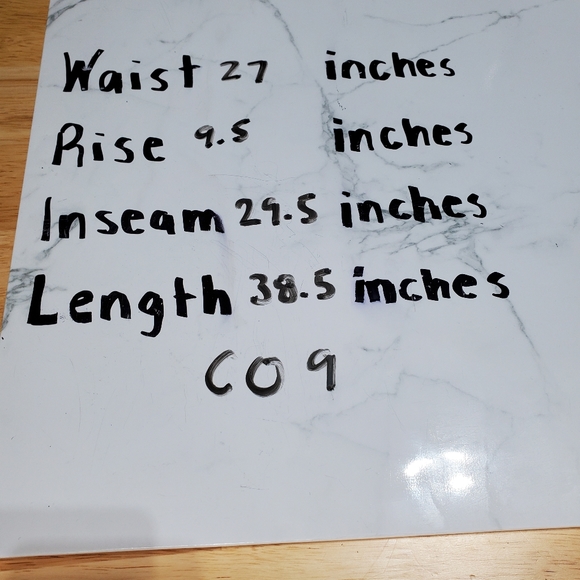 Waist 27 inches
Rise 9.5 inches
Inseam 29.5 inches
Length 38.5 inches
CO9